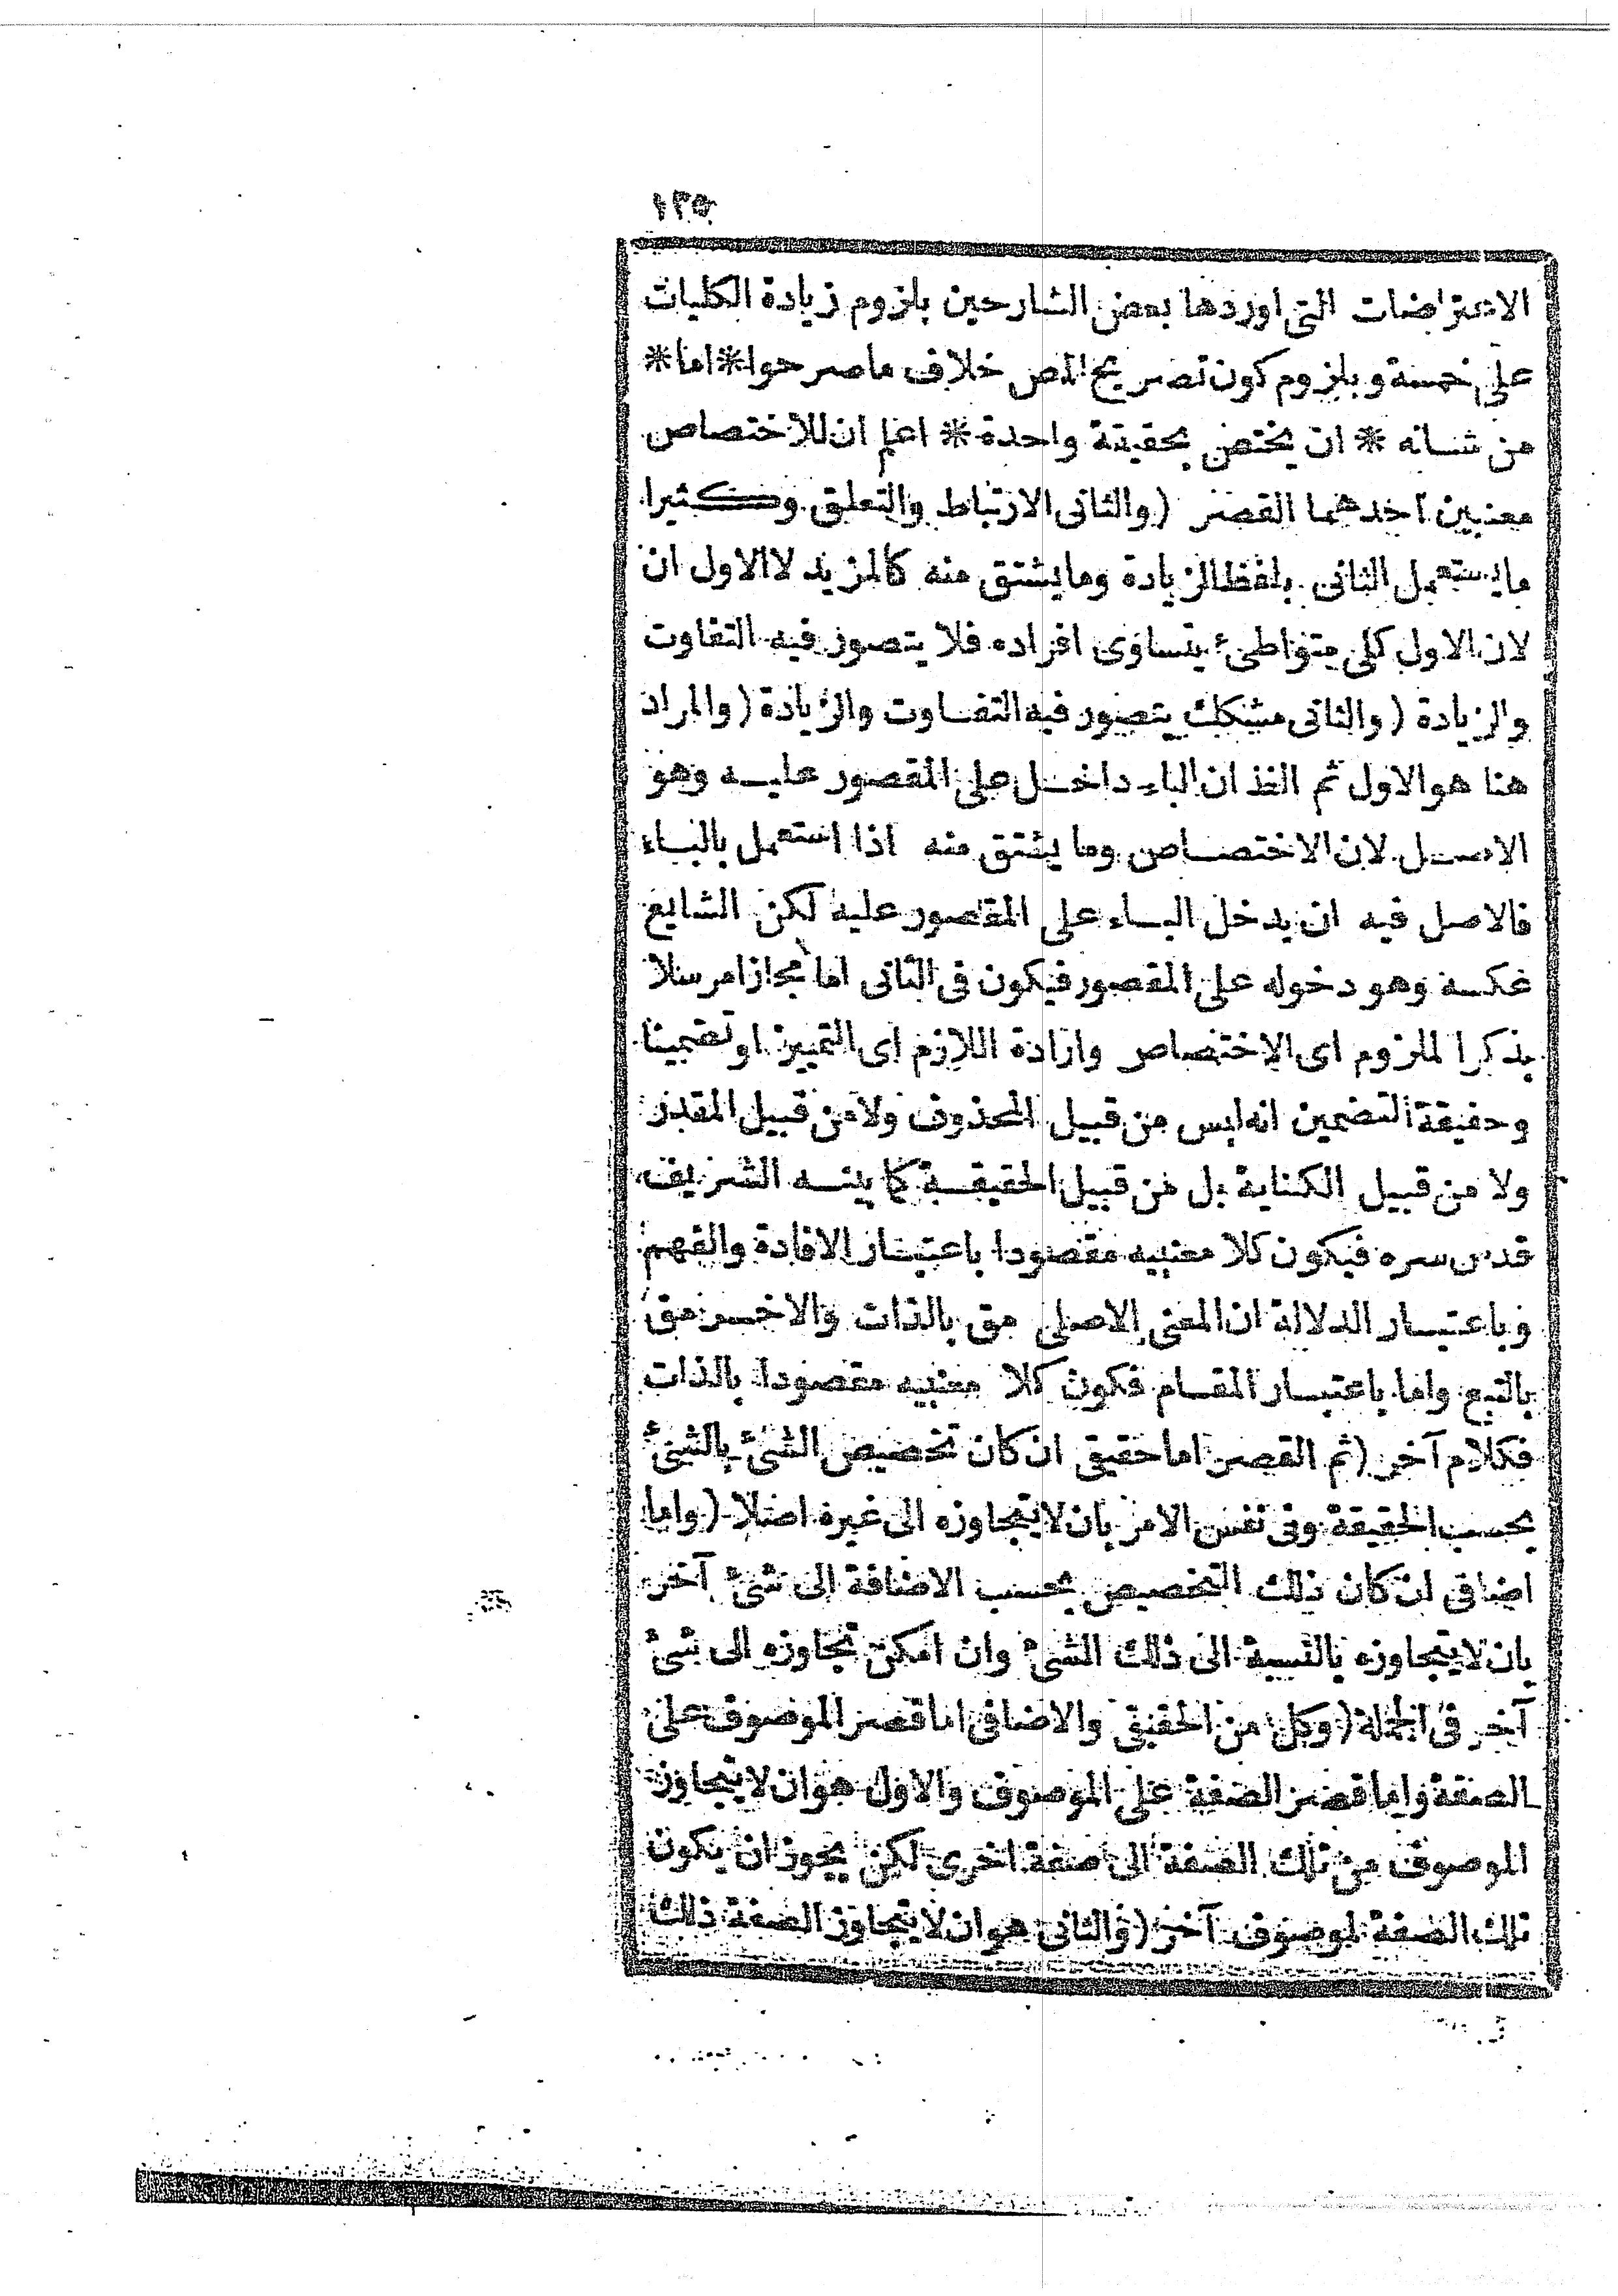 ١٣٥
الاعتراضات التى اوردها بعض الشارحين بلزوم زيادة الكليات
على خمسة وبلزوم كون تصريح المص خلاف ما صرحوا * اما *
من شانه * ان يختص بحقيقة واحدة * اعلم ان للاختصاص
معنيين احدهما القصر (والثانى الارتباط والتعلق وكثيرا
ما يستعمل الثانى بلفظ الزيادة وما يشتق منه كالمزيد لا الاول ان
لان الاول كلى متواطئ يتساوى افراده فلا يتصور فيه التفاوت
والزيادة (والثانى مشكك يتصور فيه التفاوت والزيادة (والمراد
هنا هو الاول ثم الظ ان الباء داخل على المقصور عليه وهو
الاصل لان الاختصاص وما يشتق منه اذا استعمل بالباء
فالاصل فيه ان يدخل الباء على المقصور عليه لكن الشايع
عكسه وهو دخوله على المقصور فيكون فى الثانى اما مجازا مرسلا
بذكر الملزوم اى الاختصاص وارادة اللازم اى التمييز او تضمينا
وحقيقة التضمين انه ليس من قبيل المحذوف ولا من قبيل المقدر
ولا من قبيل الكناية بل من قبيل الحقيقة كما بينه الشريف
قدس سره فيكون كلا معنييه مقصودا باعتبار الافادة والفهم
وباعتبار الدلالة ان المعنى الاصلى مق بالذات والاخر مق
بالتبع واما باعتبار المقام فكون كلا معنييه مقصودا بالذات
فكلام آخر (ثم القصر اما حقيقى ان كان تخصيص الشئ بالشئ
بحسب الحقيقة وفى نفس الامر بان لا يتجاوزه الى غيره اصلا (واما
اضافى ان كان ذلك التخصيص بحسب الاضافة الى شئ آخر
بان لا يتجاوزه بالنسبة الى ذلك الشئ وان امكن تجاوزه الى شئ
آخر فى الجملة (وكل من الحقيقى والاضافى اما قصر الموصوف على
الصفة واما قصر الصفة على الموصوف والاول هو ان لا يتجاوز
الموصوف من تلك الصفة الى صفة اخرى لكن يجوز ان يكون
تلك الصفة لموصوف آخر (والثانى هو ان لا يتجاوز الصفة ذلك